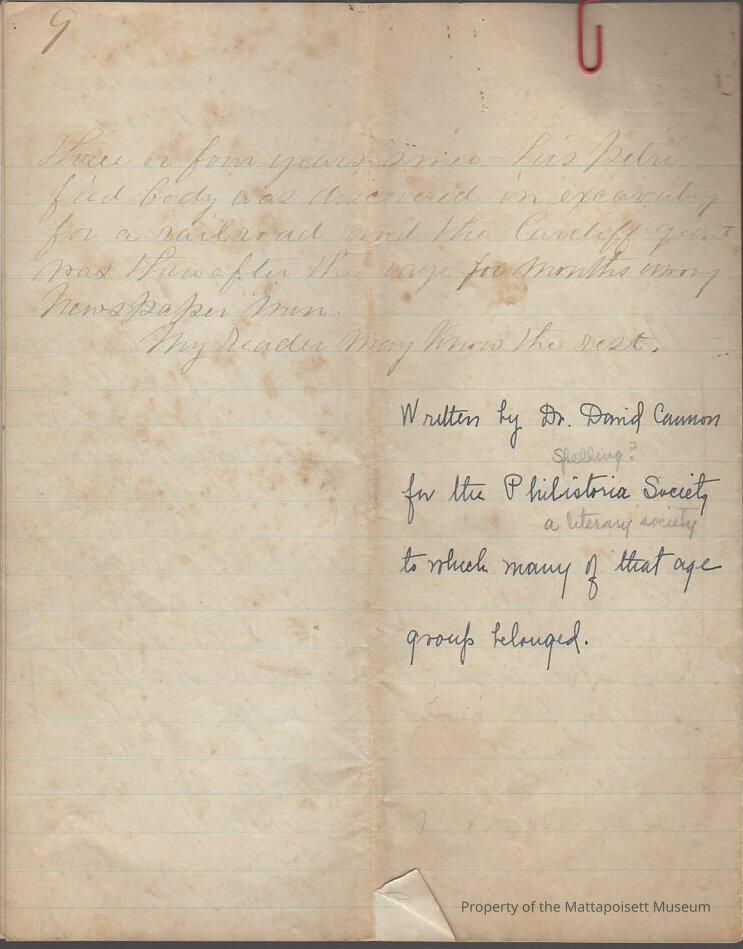 9
three or four years since - his petri
fied body was discovered in excavating
for a railroad and the Cardiff giant
was thereafter the rage for months among
Newspaper men.
My reader may know the rest.
Written by Dr. David Cannon
Spelling?
for the Philistoria Society
a literary society
to which many of that age
group belonged.
Property of the Mattapoisett Museum